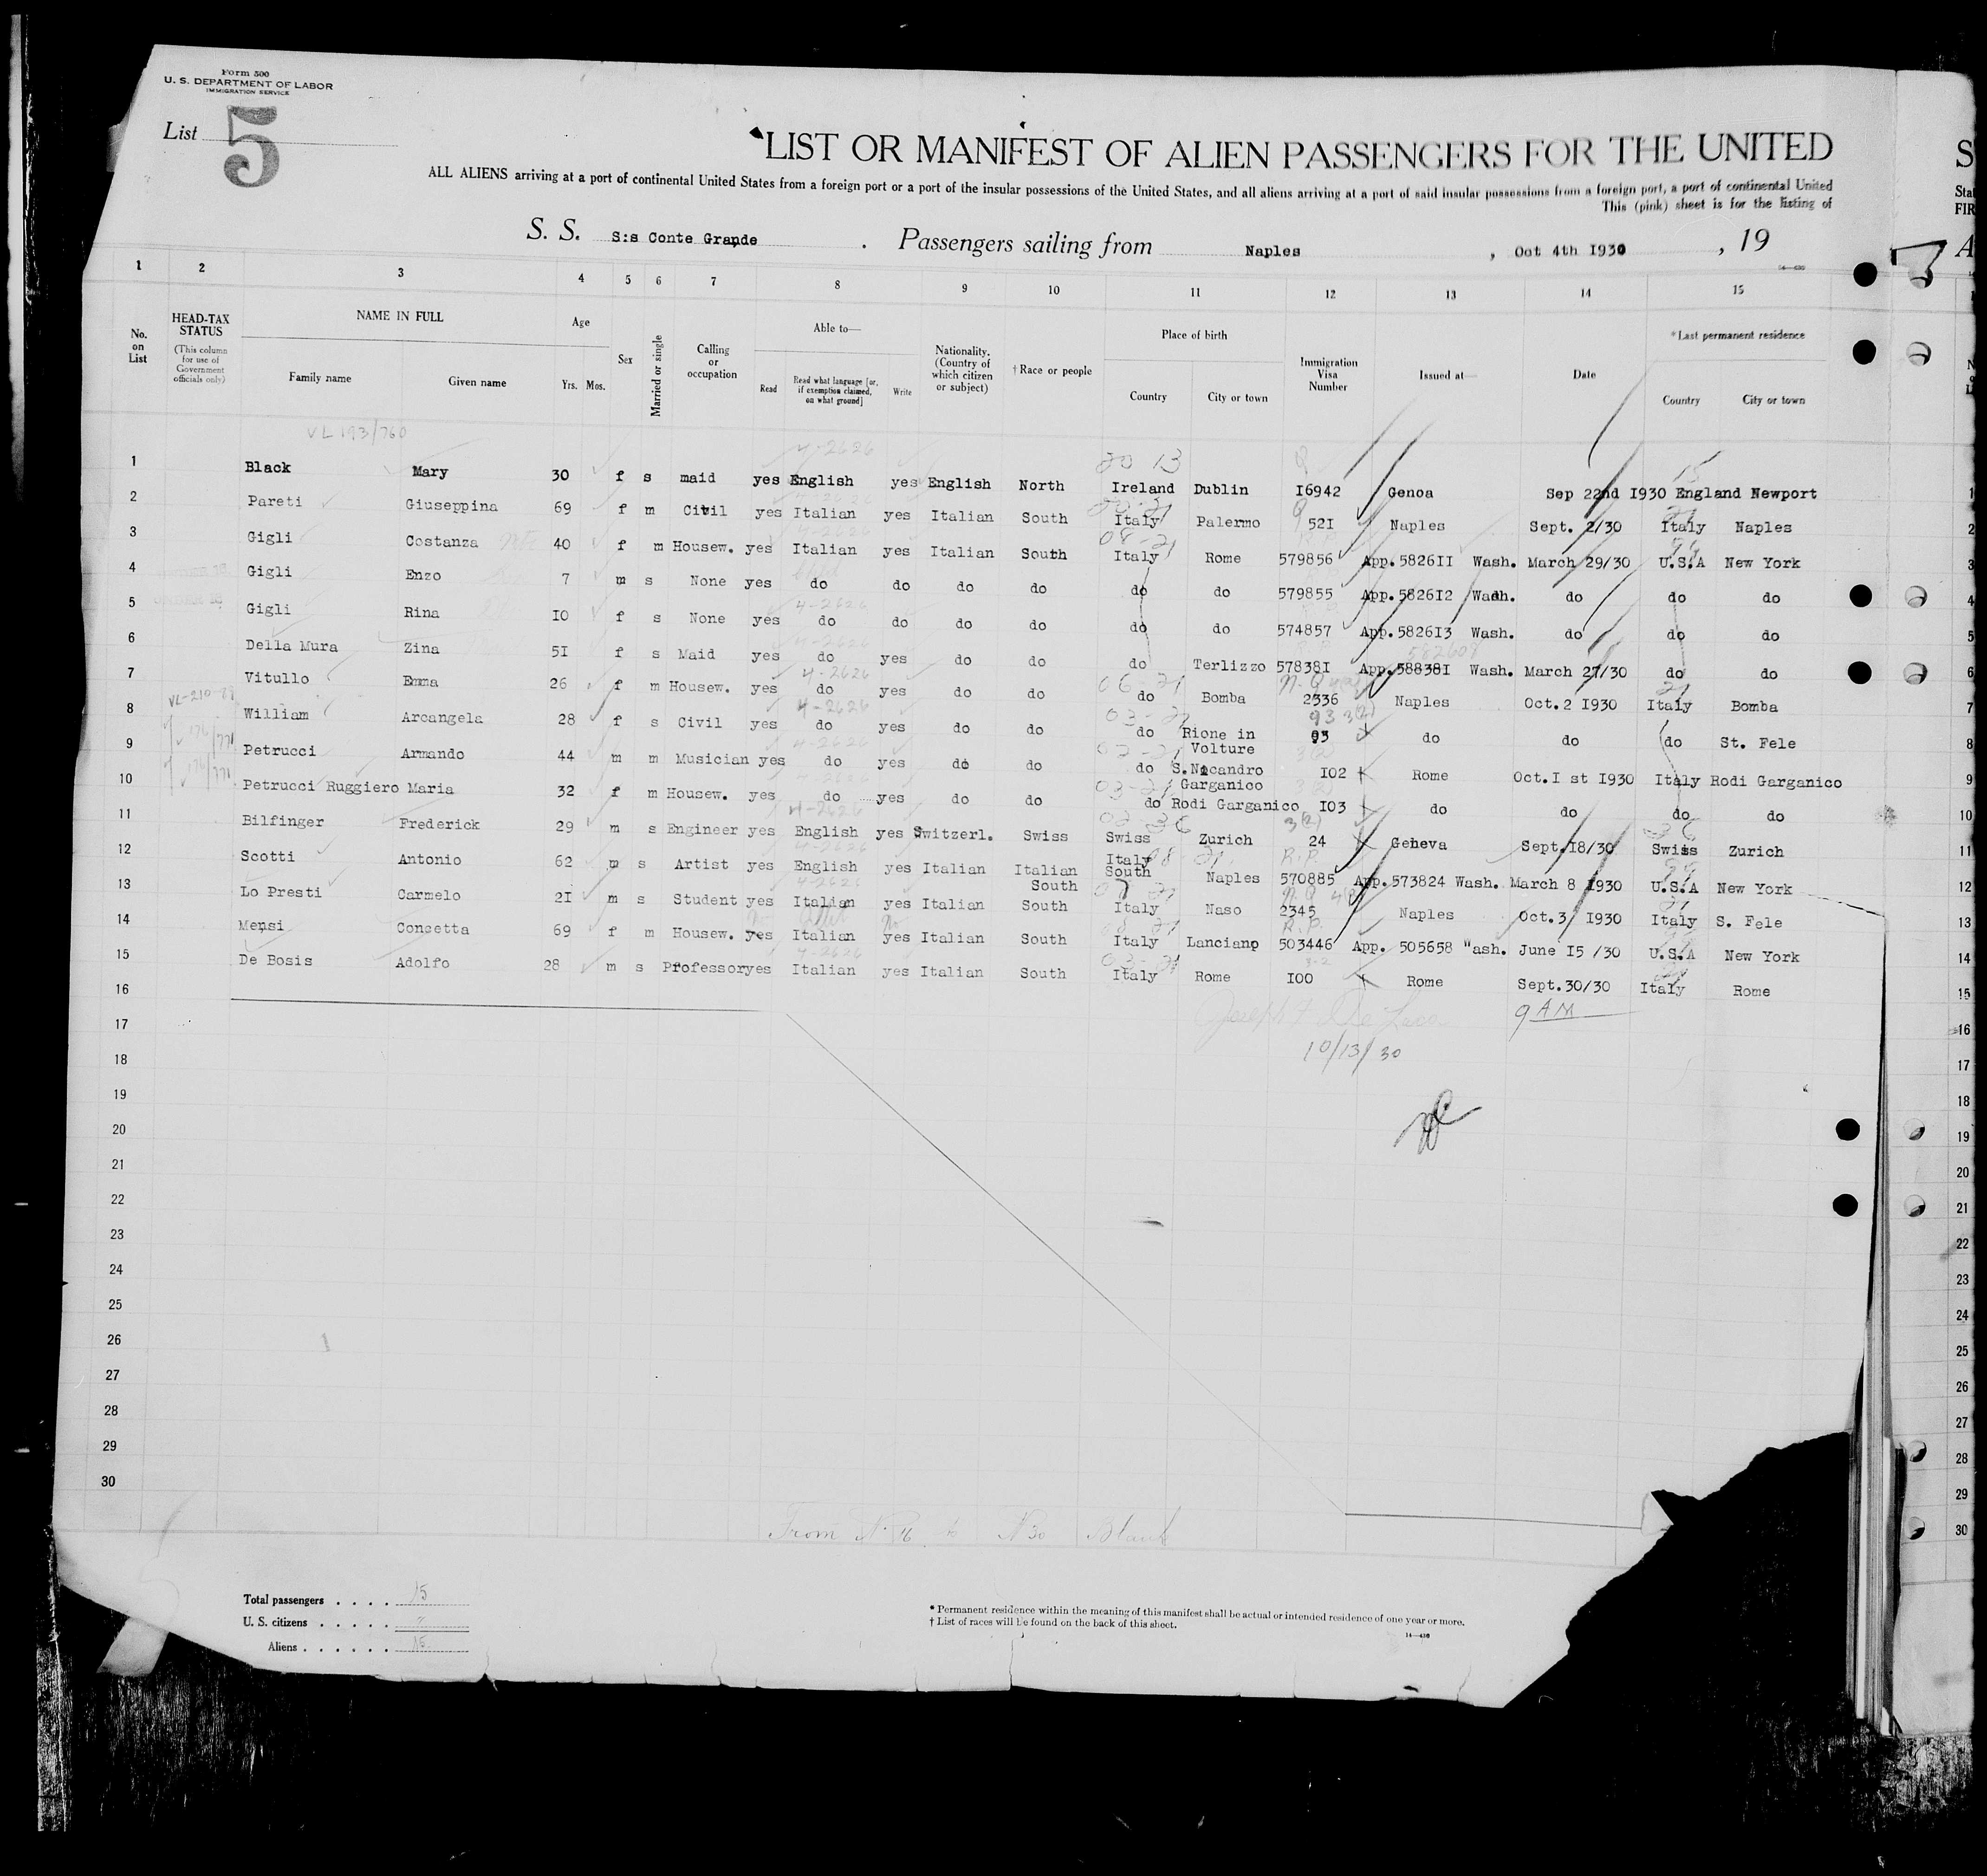 Form 500
U. S. DEPARTMENT OF LABOR
IMMIGRATION SERVICE
List 5
LIST OR MANIFEST OF ALIEN PASSENGERS FOR THE UNITED
ALL ALIENS arriving at a port of continental United States from a foreign port or a port of the insular possessions of the United States, and all aliens arriving at a port of said insular possessions from a foreign port, a port of continental United
This (pink) sheet is for the listing of
S. S. S:s Conte Grande . Passengers sailing from Naples , Oct 4th I930 , 19
1 2 3 4 5 6 7 8 9 10 11 12 13 14 15
No. on List
HEAD-TAX STATUS
(This column for use of Government officials only)
NAME IN FULL
Family name Given name
Age
Yrs. Mos.
Sex
Married or single
Calling or occupation
Able to—
Read Read what language [or, if exemption claimed, on what ground] Write
Nationality. (Country of which citizen or subject)
†Race or people
Place of birth
Country City or town
Immigration Visa Number
Issued at—
Date
*Last permanent residence
Country City or town
VL 193/760
1 Black Mary 30 f s maid yes English yes English North Ireland Dublin I6942 Genoa Sep 22nd I930 England Newport
2 Pareti Giuseppina 69 f m Civil yes Italian yes Italian South Italy Palermo 52I Naples Sept. 2/30 Italy Naples
3 Gigli Costanza 40 f m Housew. yes Italian yes Italian South Italy Rome 579856 App.5826II Wash. March 29/30 U.S.A New York
4 Gigli Enzo 7 m s None yes do do do do do do 579855 App.5826I2 Wash. do do do
5 Gigli Rina I0 f s None yes do do do do do do 574857 App.5826I3 Wash. do do do
6 Della Mura Zina 5I f s Maid yes do yes do do do Terlizzo 57838I App.58838I Wash. March 27/30 do do
582608
7 Vitullo Emma 26 f m Housew. yes do yes do do do Bomba 2336 Naples Oct.2 I930 Italy Bomba
8 William Arcangela 28 f s Civil yes do yes do do do Rione in Volture 93 do do do St. Fele
9 Petrucci Armando 44 m m Musician yes do yes do do do S.Nicandro Garganico I02 Rome Oct.I st I930 Italy Rodi Garganico
10 Petrucci Ruggiero Maria 32 f m Housew. yes do yes do do do Rodi Garganico I03 do do do do
11 Bilfinger Frederick 29 m s Engineer yes English yes Switzerl. Swiss Swiss Zurich 24 Geneva Sept.I8/30 Swiss Zurich
12 Scotti Antonio 62 m s Artist yes English yes Italian Italian South Italy South Naples 570885 App.573824 Wash. March 8 I930 U.S.A New York
13 Lo Presti Carmelo 2I m s Student yes Italian yes Italian South Italy Naso 2345 Naples Oct.3/ I930 Italy S. Fele
14 Mensi Concetta 69 f m Housew. yes Italian yes Italian South Italy Lanciano 503446 App. 505658 "ash. June I5 /30 U.S.A New York
15 De Bosis Adolfo 28 m s Professor yes Italian yes Italian South Italy Rome I00 Rome Sept.30/30 Italy Rome
16
9 AM
17
10/13/30
18
19
20
21
22
23
24
25
26
27
28
29
30
From N. 16 to N 30 Blank
Total passengers . . . . 15
U. S. citizens . . . . . "
Aliens . . . . . . 15
* Permanent residence within the meaning of this manifest shall be actual or intended residence of one year or more.
† List of races will be found on the back of this sheet.